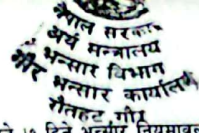 नेपाल सरकार
अर्थ मन्त्रालय
भन्सार विभाग
गौर भन्सार कार्यालय
रौतहट, गौर
७ दिने भन्सार